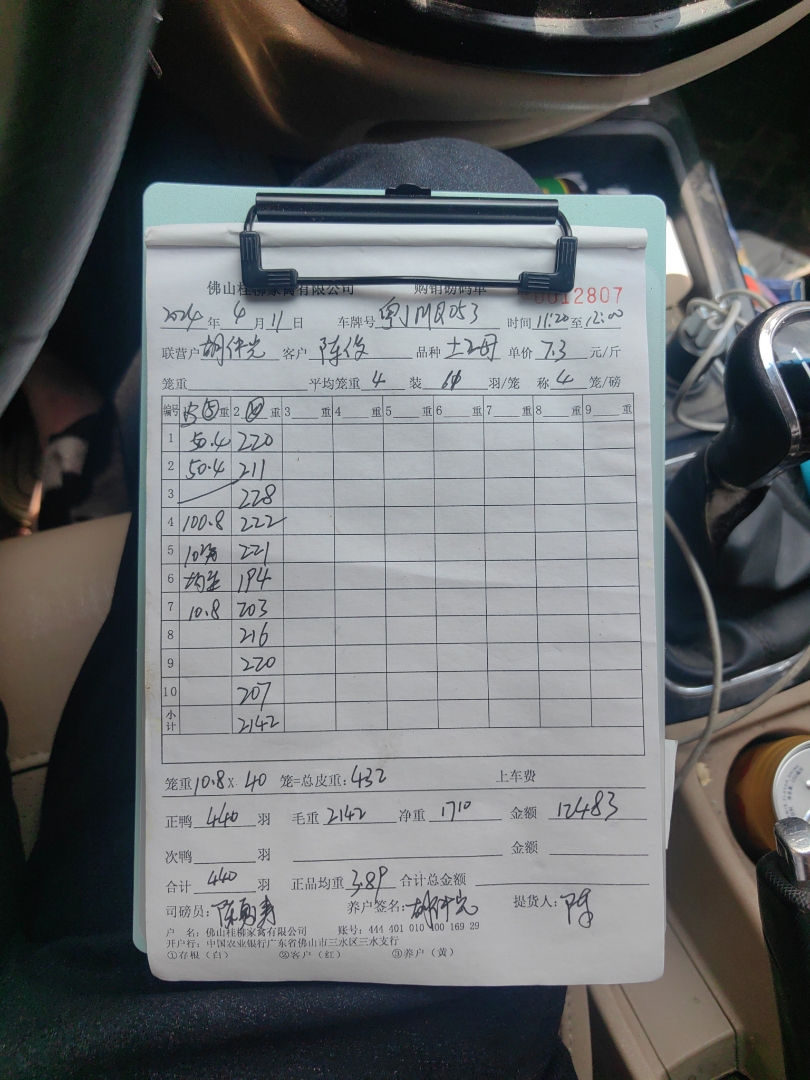 佛山桂柳家禽有限公司 购销磅码单 0012807
2024年 4月 11日 车牌号 粤J MQ053 时间 11:20 至 12:00
联营户 胡伴光 客户 陈俊 品种 土2母 单价 7.3 元/斤
笼重 平均笼重 4 装 羽/笼 称 4 笼/磅
编号 重 2 重 3 重 4 重 5 重 6 重 7 重 8 重 9 重
1 50.4 220
2 50.4 211
3 228
4 100.8 222
5 221
6 194
7 10.8 203
8 216
9 220
10 207
小计 2142
笼重 10.8 X 40 笼=总皮重: 432 上车费
正鸭 440 羽 毛重 2142 净重 1710 金额 12483
次鸭 羽 金额
合计 440 羽 正品均重 3.89 合计总金额
司磅员: 养户签名: 胡伴光 提货人: 陈
户 名: 佛山桂柳家禽有限公司 账号: 444 401 010 400 169 29
开户行: 中国农业银行广东省佛山市三水区三水支行
①存根(白) ②客户(红) ③养户(黄)